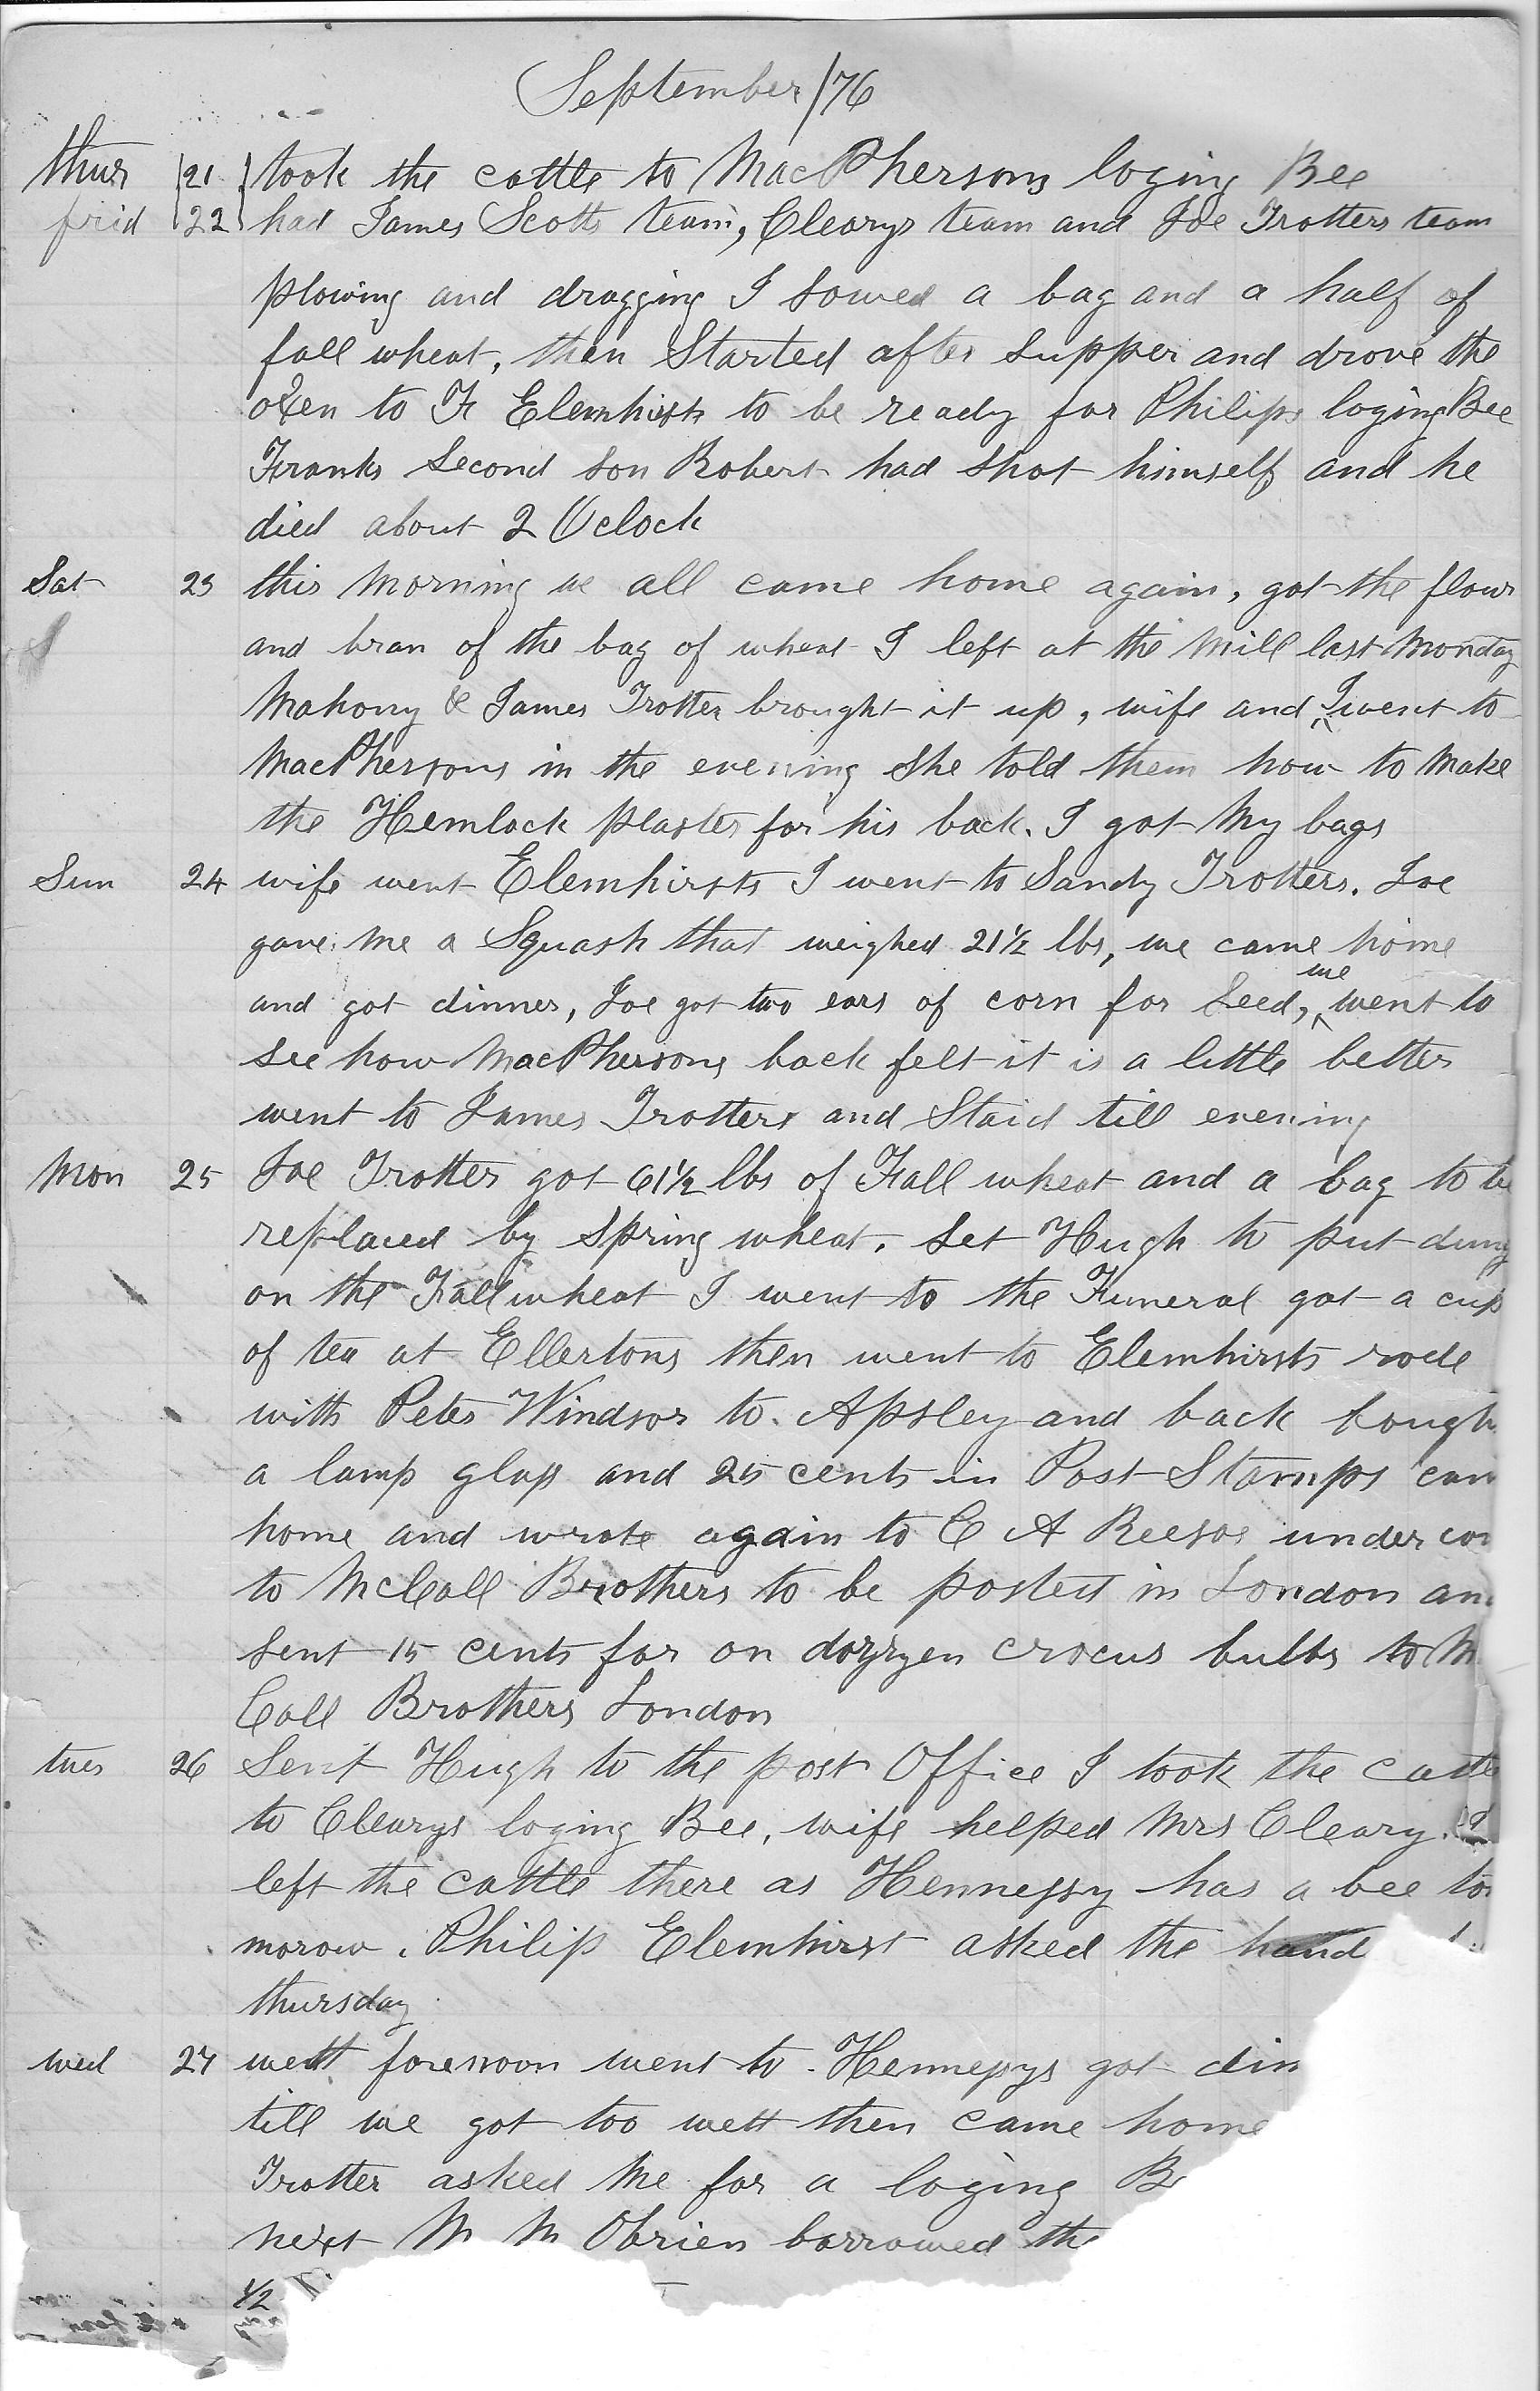 September /76
thur 21 took the cattle to MacPhersons loging Bee
frid 22 had James Scotts team, Clearys team and Joe Trotters team
plowing and dragging I sowed a bag and a half of
fall wheat, then Started after supper and drove the
oxen to F Elemhirsts to be ready for Philips loging Bee
Franks second son Robert had shot himself and he
died about 2 Oclock
Sat 23 this morning we all came home again, got the flour
and bran of the bag of wheat I left at the mill last Monday
Mahony & James Trotter brought it up, wife and I went to
MacPhersons in the evening she told them how to make
the Hemlock plaster for his back. I got my bags
Sun 24 wife went Elemhirsts I went to Sandy Trotters. Joe
gave me a Squash that weighed 21½ lbs, we came home
and got dinner, Joe got two ears of corn for seed, we went to
see how MacPhersons back felt it is a little better
went to James Trotters and Staid till evening
Mon 25 Joe Trotter got 61½ lbs of Fall wheat and a bag to
replaced by Spring wheat. set Hugh to put dung
on the Fall wheat I went to the Funeral got a cup
of tea at Ellertons then went to Elemhirsts rode
with Peter Windsor to. Apsley and back bough
a lamp glass and 25 cents in Post Stamps
home and wrote again to C A Reesor under
to McCall Brothers to be posted in London an
sent 15 cents for on dozzyen crocus bulbs to M
Call Brothers London
tues 26 Sent Hugh to the post Office I took the cattle
to Clearys loging Bee, wife helped Mrs Cleary.
left the cattle there as Hennessy has a bee to
morow. Philip Elemhirst asked the hand
thursday
wed 27 wett forenoon went to Hennessys got din
till we got too wett then came home
Trotter asked me for a loging B
next M M Obrien borrowed the
1/2